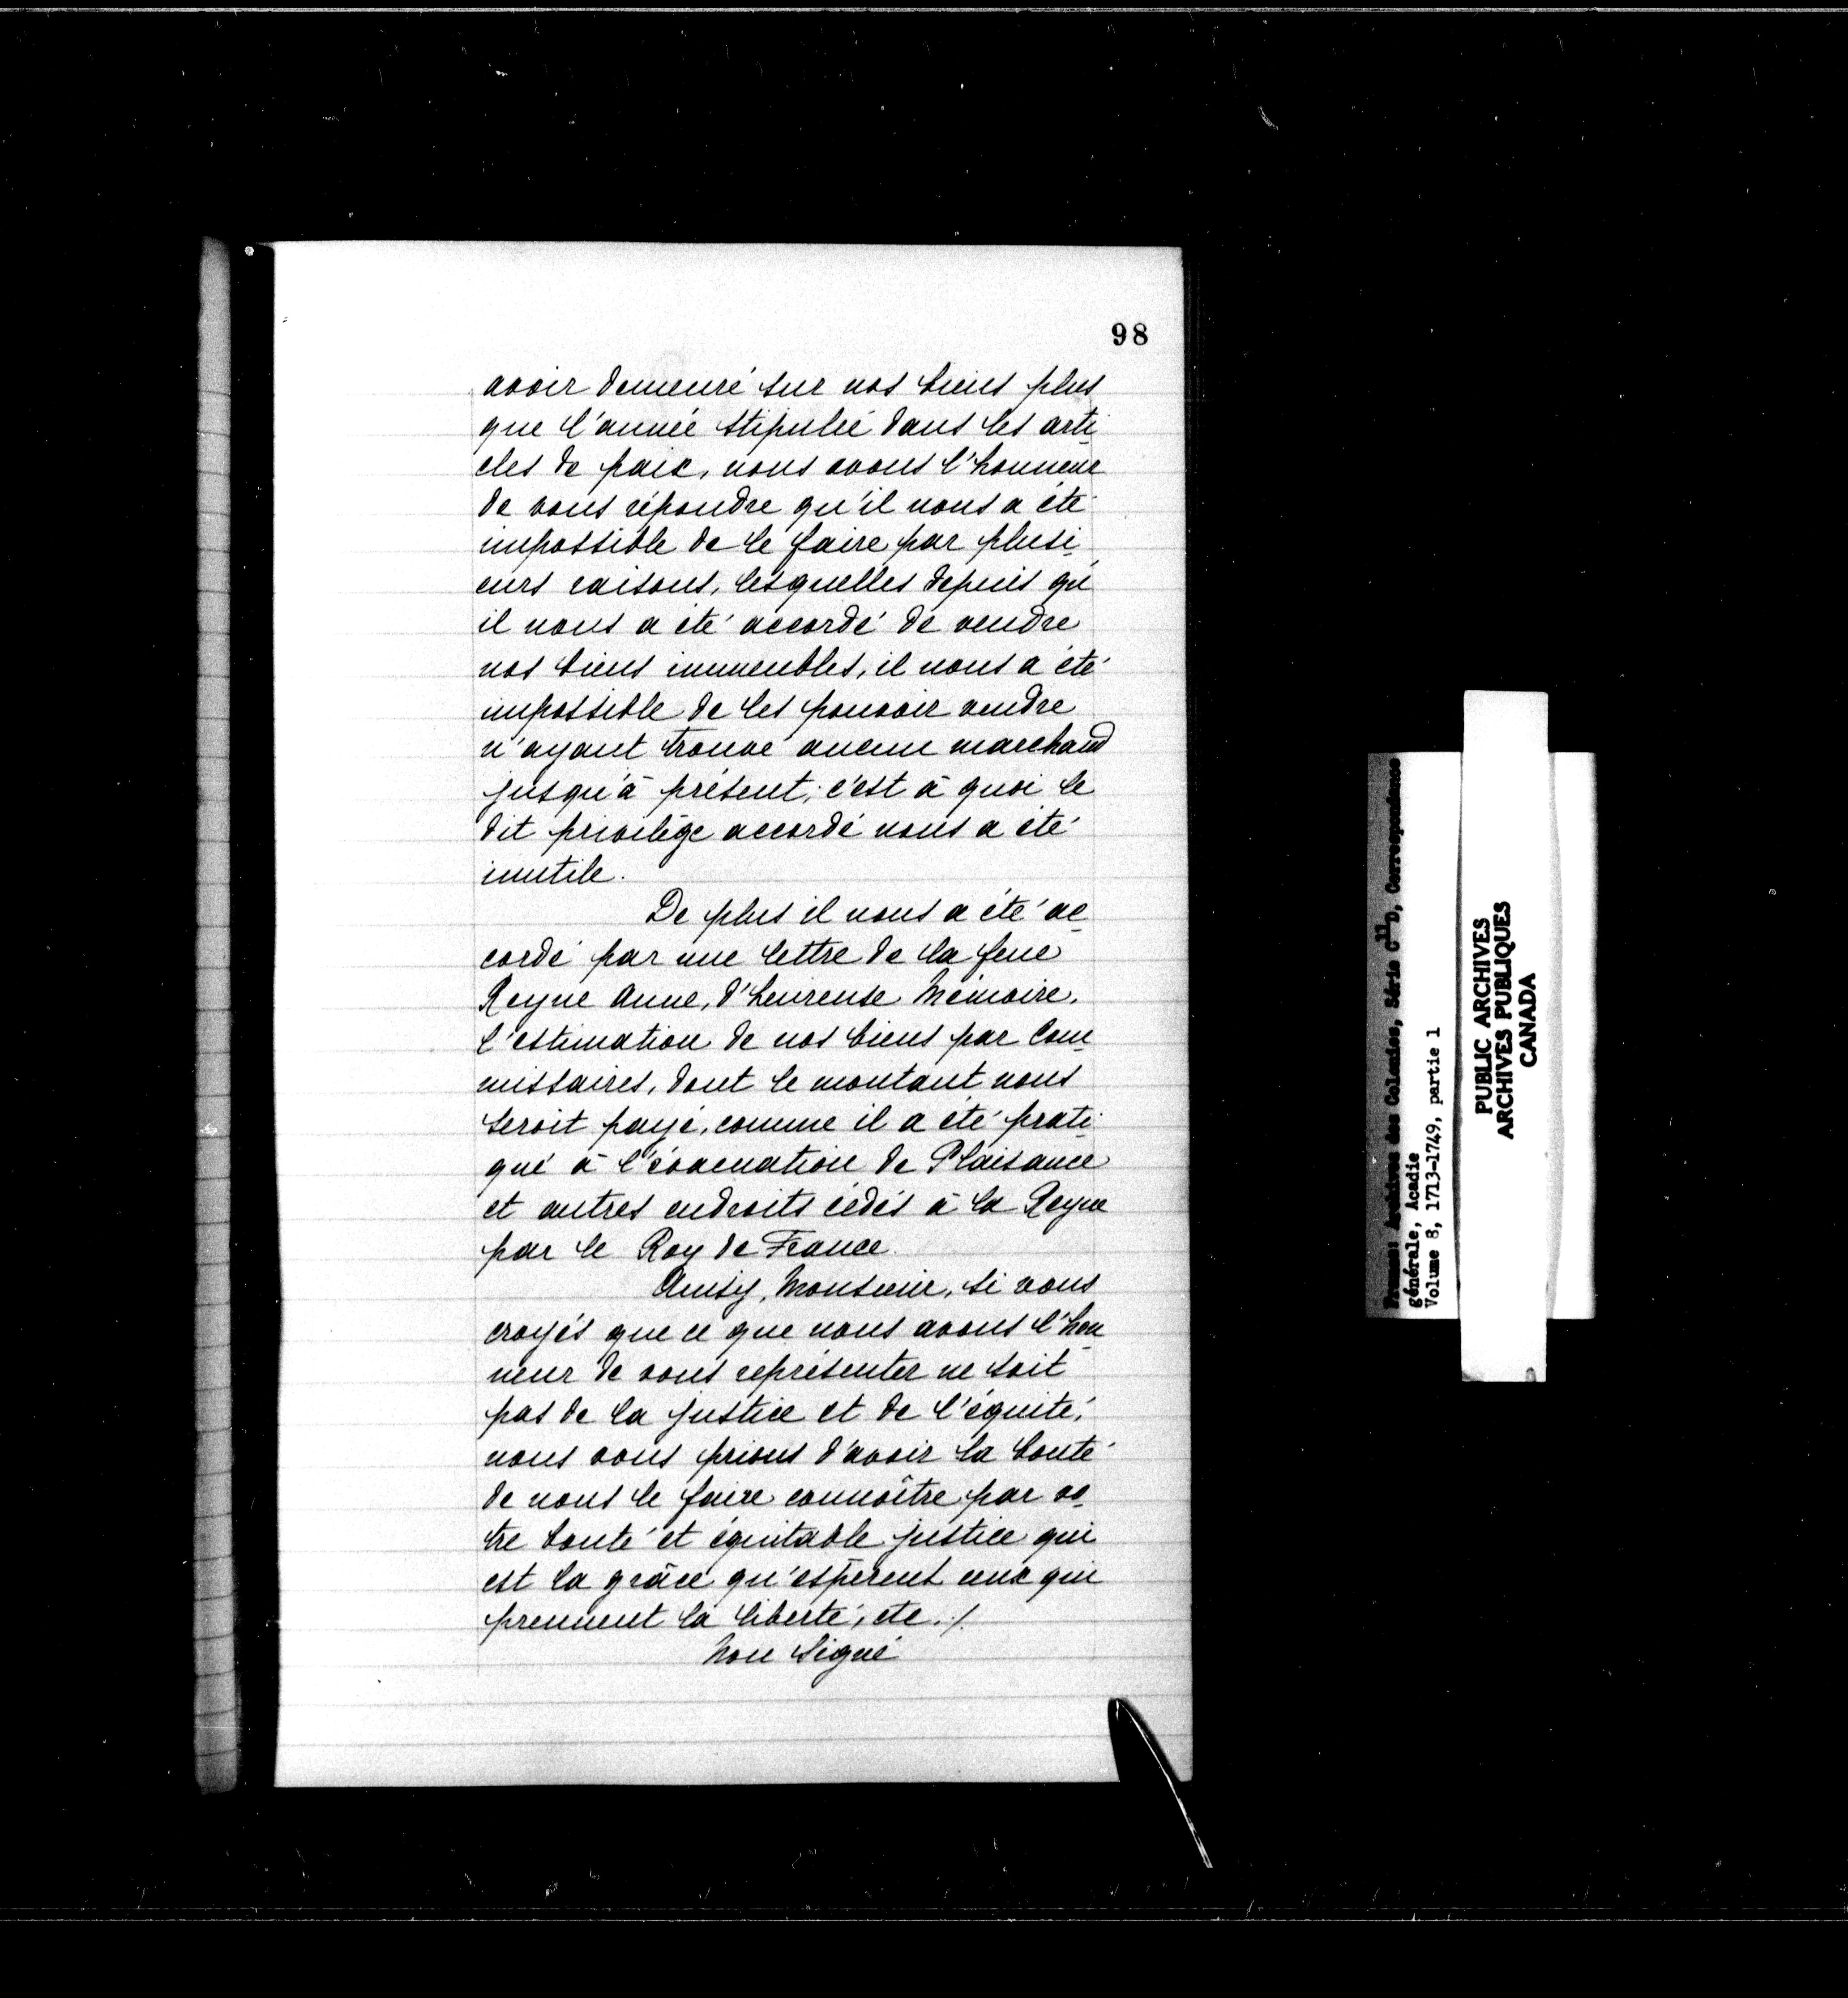 98
avoir demeuré sur nos biens plus
que l'année stipulée dans les arti-
cles de paix, nous avons l'honneur
de vous répondre qu'il nous a été
impossible de le faire par plusi-
eurs raisons, lesquelles depuis qu'
il nous a été accordé de vendre
nos biens immeubles, il nous a été
impossible de les pouvoir vendre
n'ayant trouvé aucun marchand
jusqu'à présent, c'est à quoi le
dit privilège accordé nous a été
inutile.
De plus il nous a été ac-
cordé par une lettre de la feue
Reyne Anne, d'heureuse Mémoire,
l'estimation de nos biens par Com-
missaires, dont le montant nous
seroit payé, comme il a été prati-
qué à l'évacuation de Plaisance
et autres endroits cédés à la Reyne
par le Roy de France.
Ainsy, Monsieur, si vous
croyés que ce que nous avons l'hon-
neur de vous représenter ne soit
pas de la justice et de l'équité,
nous vous prions d'avoir la bonté
de nous le faire connoître par vo-
tre bonté et équitable justice qui
est la grâce qu'espèrent ceux qui
prennent la liberté, etc./.
Non Signé
France: Archives des Colonies, Série C11D, Correspondance
générale, Acadie
Volume 8, 1713-1749, partie 1
PUBLIC ARCHIVES
ARCHIVES PUBLIQUES
CANADA